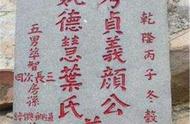 乾隆丙子冬穀
考貞義顏公
妣德慧葉氏
五男
長三
次四
房孫